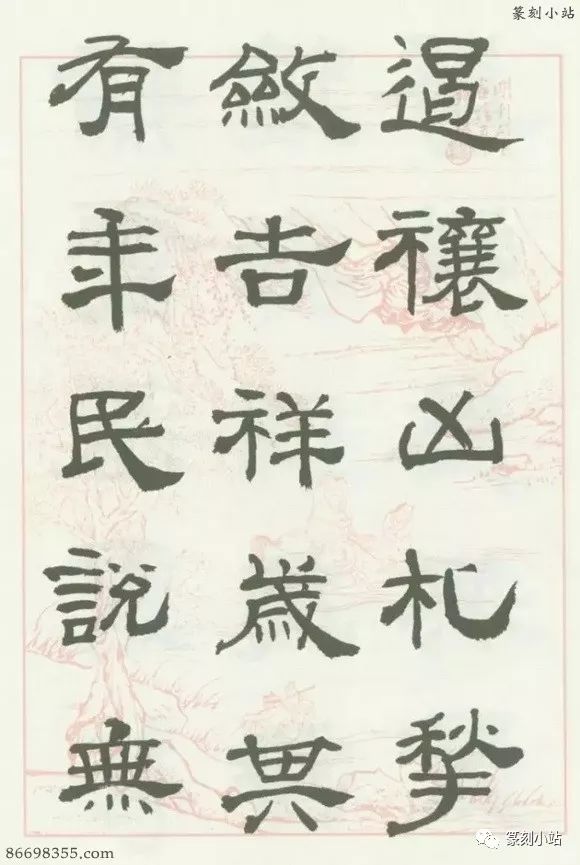 篆刻小站
遏禳凶札揫
斂吉祥歲其
有年民說無
86698355.com
篆刻小站